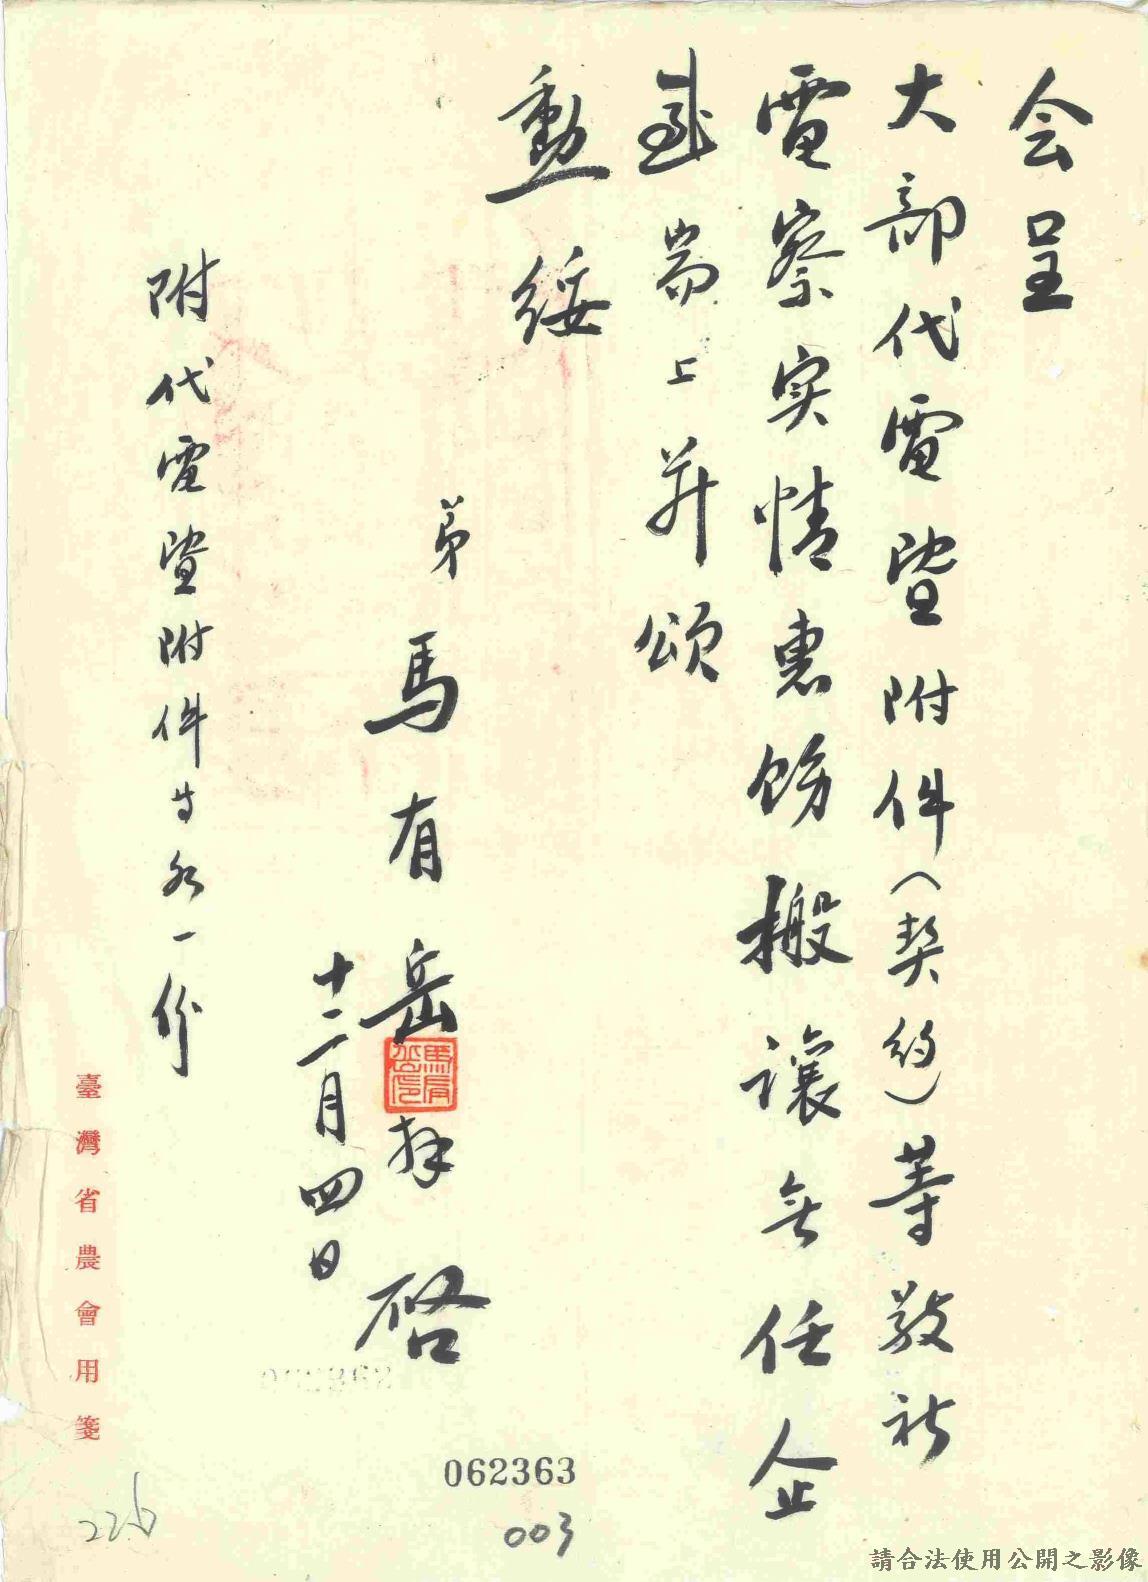 会呈
大部代電暨附件（契約）等敬祈
電察实情惠飭搬讓無任企
感耑上並頌
勳綏
弟馬有岳拜啓
十二月四日
附代電暨附件各一份
臺灣省農會用箋
062363
003
226
請合法使用公開之影像